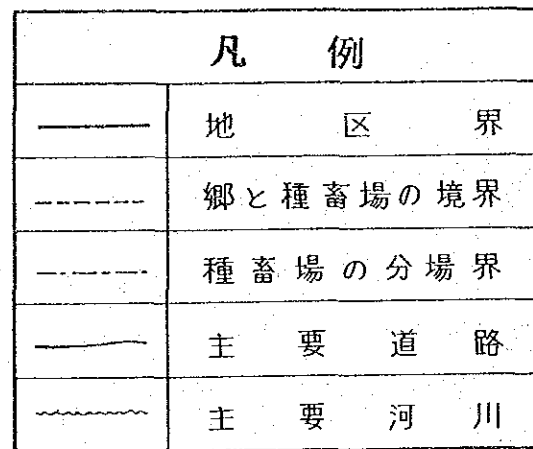 凡例
地区界
郷と種畜場の境界
種畜場の分場界
主要道路
主要河川